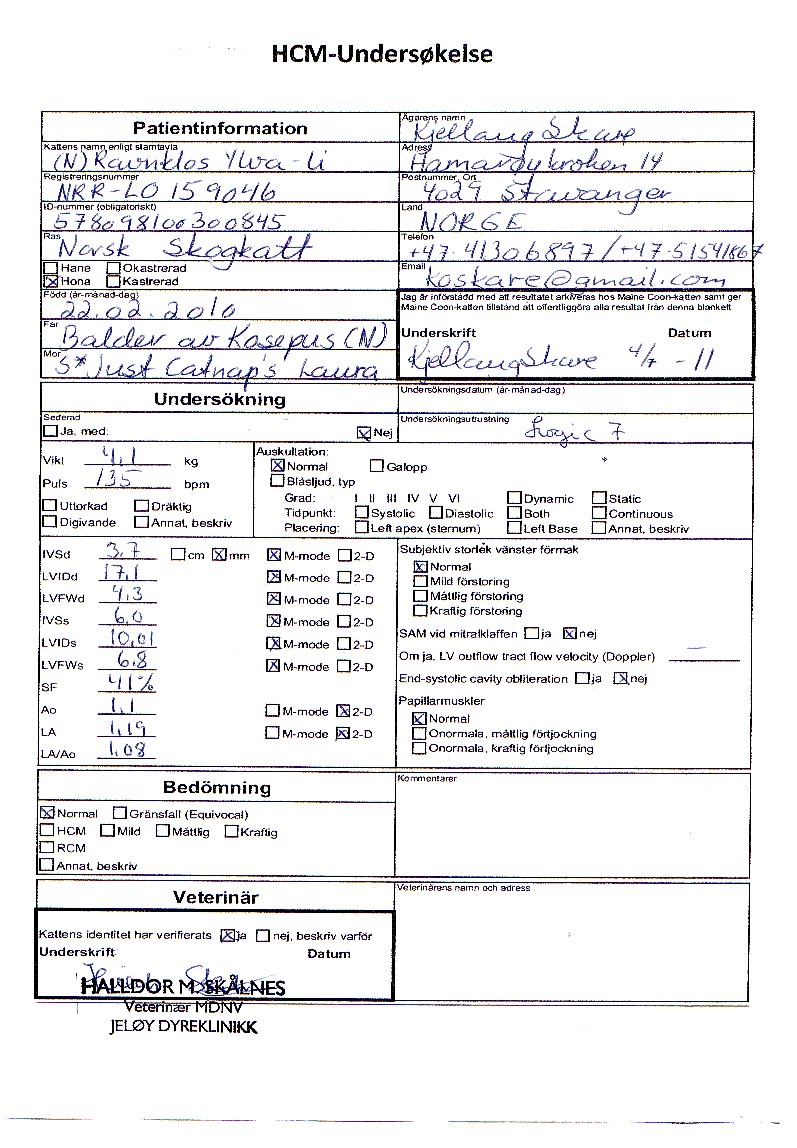 HCM-Undersøkelse
Patientinformation
Kattens namn enligt stamtavla
(N) Ravnklos Ylva-Li
Registreringsnummer
NRR-LO 159046
ID-nummer (obligatoriskt)
578098100300845
Ras
Norsk Skogkatt
Hane Okastrerad
Hona Kastrerad
Född (år-månad-dag)
22.02.2010
Far
Balder av Kasepus (N)
Mor
S* Just Catnap's Laura
Ägarens namn
Kjellaug Skare
Adress
Hamarøykroken 14
Postnummer, Ort
4029 Stavanger
Land
NORGE
Telefon
+47-41306897/+47-51541867
Email
koskare@gmail.com
Jag är införstådd med att resultatet arkiveras hos Maine Coon-katten samt ger
Maine Coon-katten tillstånd att offentliggöra alla resultat från denna blankett
Underskrift Datum
Kjellaug Skare 4/7 -11
Undersökning
Sederad
Ja, med: Nej
Undersökningsdatum (år-månad-dag)
Undersökningsutrustning
Logic 7
Vikt 4,1 kg
Puls 135 bpm
Uttorkad Dräktig
Digivande Annat, beskriv
Auskultation:
Normal Galopp
Blåsljud, typ
Grad: I II III IV V VI Dynamic Static
Tidpunkt: Systolic Diastolic Both Continuous
Placering: Left apex (sternum) Left Base Annat, beskriv
IVSd 3,7 cm mm M-mode 2-D
LVIDd 17,1 M-mode 2-D
LVFWd 4,3 M-mode 2-D
IVSs 6,0 M-mode 2-D
LVIDs 10,01 M-mode 2-D
LVFWs 6,8 M-mode 2-D
SF 41%
Ao 1,1 M-mode 2-D
LA 1,19 M-mode 2-D
LA/Ao 1,08
Subjektiv storlek vänster förmak
Normal
Mild förstoring
Måttlig förstoring
Kraftig förstoring
SAM vid mitralklaffen ja nej
Om ja, LV outflow tract flow velocity (Doppler)
End-systolic cavity obliteration ja nej
Papillarmuskler
Normal
Onormala, måttlig förtjockning
Onormala, kraftig förtjockning
Bedömning
Normal Gränsfall (Equivocal)
HCM Mild Måttlig Kraftig
RCM
Annat, beskriv
Kommentarer
Veterinär
Kattens identitet har verifierats ja nej, beskriv varför
Underskrift Datum
HALLDOR M SKÅLNES
Veterinær MDNV
JELØY DYREKLINIKK
Veterinärens namn och adress